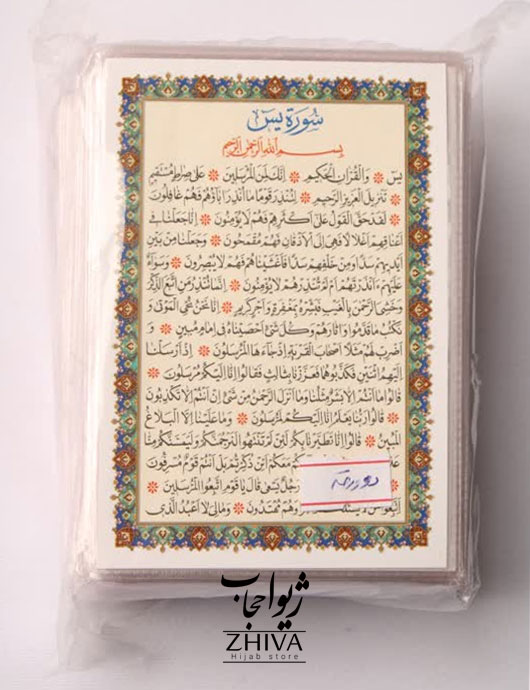 سورة يس
بسم الله الرحمن الرحيم
يس ❊ والقران الحكيم ❊ انك لمن المرسلين ❊ على صراط مستقيم
❊ تنزيل العزيز الرحيم ❊ لتنذر قوما ما انذر اباؤهم فهم غافلون
❊ لقد حق القول على اكثرهم فهم لا يؤمنون ❊ انا جعلنا فى
اعناقهم اغلالا فهى الى الاذقان فهم مقمحون ❊ وجعلنا من بين
ايديهم سدا ومن خلفهم سدا فاغشيناهم فهم لا يبصرون ❊ وسواء
عليهم ءانذرتهم ام لم تنذرهم لا يؤمنون ❊ انما تنذر من اتبع الذكر
وخشى الرحمن بالغيب فبشره بمغفرة واجر كريم ❊ انا نحن نحى الموتى و
نكتب ما قدموا واثارهم وكل شئ احصيناه فى امام مبين ❊ و
اضرب لهم مثلا اصحاب القرية اذ جاءها المرسلون ❊ اذ ارسلنا
اليهم اثنين فكذبوهما فعززنا بثالث فقالوا انا اليكم مرسلون ❊
قالوا ما انتم الا بشر مثلنا وما انزل الرحمن من شئ ان انتم الا تكذبون
❊ قالوا ربنا يعلم انا اليكم لمرسلون ❊ وما علينا الا البلاغ
المبين ❊ قالوا انا تطيرنا بكم لئن لم تنتهوا لنرجمنكم وليمسنكم منا
معكم ائن ذكرتم بل انتم قوم مسرفون
رجل يسعى قال يا قوم اتبعوا المرسلين ❊
اتبعوا من لا يسئلكم وهم مهتدون ❊ ومالى لا اعبد الذى
ژیوا حجاب
ZHIVA
Hijab store